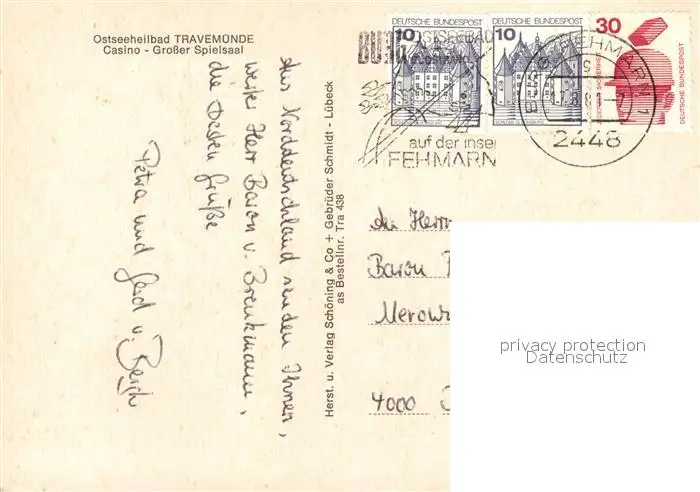 Ostseeheilbad TRAVEMÜNDE
Casino - Großer Spielsaal
Aus Norddeutschland senden Ihnen,
werter Herr Baron v. Brenkmann,
die besten Grüße
Petra und Gerd v.
Herst. u. Verlag Schöning & Co + Gebrüder Schmidt - Lübeck
as Bestellnr. Tra 438
BURG
OSTSEEBAD
auf der Insel
FEHMARN
10 DEUTSCHE BUNDESPOST
10 DEUTSCHE BUNDESPOST
30
DEUTSCHE BUNDESPOST
BURG FEHMARN 1
2448
Herrn
Baron
4000
privacy protection
Datenschutz